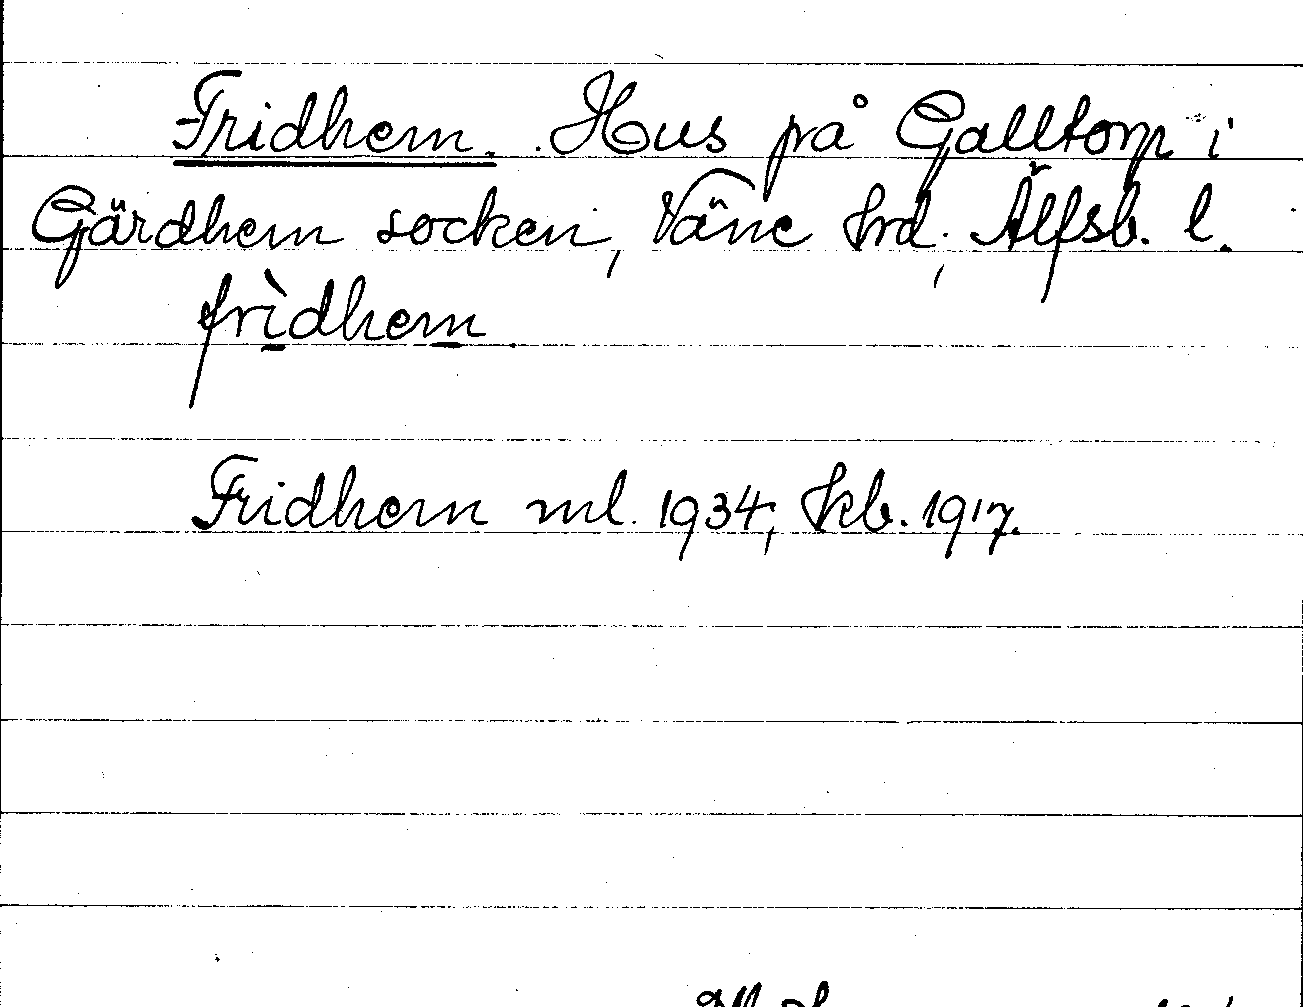 Fridhem. Hus på Galltorp i
Gärdhem socken, Väne hrd, Älfsb. l.
frìdhem
Fridhem ml. 1934, kb. 1917.